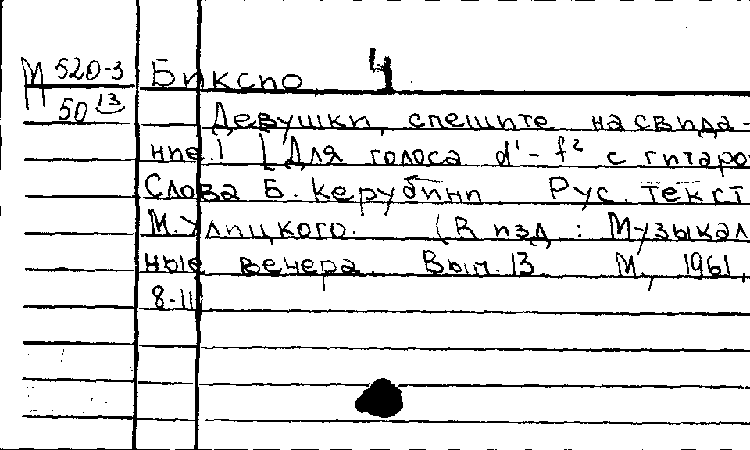 М 520-3 Биксио 4
П 50 13
Девушки, спешите на свида-
ние! [Для голоса d¹-f² с гитаро
Слова Б. Керубини. Рус. текст
М. Улицкого. (В изд.: Музыкаль
ные вечера. Вып. 13 М., 1961,
8-11